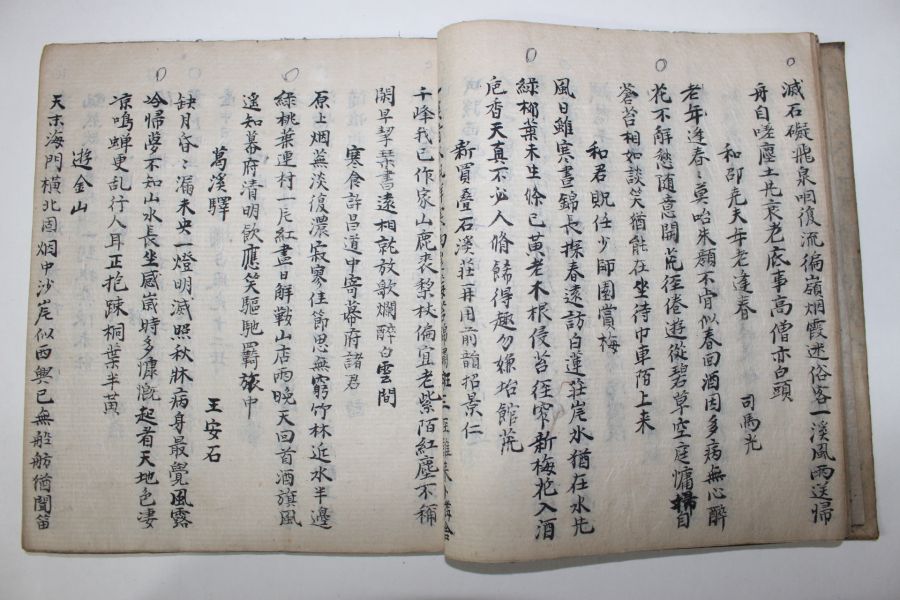 滅石礙飛泉咽復流徧嶺烟霞迷俗客一溪風雨送歸
舟自嗟塵土先衰老底事高僧亦白頭
和邵先夫年老逢春 司馬光
老年逢春〻莫咍朱顔不宜似春回酒因多病無心醉
花不解愁随意開荒徑倦遊從碧草空庭慵掃自
蒼苔相如談笑猶能在坐待巾車陌上来
和君貺任少師園賞梅
風日雖寒晝錦長探春遠訪白蓮莊岸水猶在水先
綠柳葉未生條已黄老木根侵苔徑窄新梅花入酒
巵香天真不必人脩餙得趣勿嫌坮館荒
新買叠石溪莊再用前韻招景仁
千峰我已作家山鹿裘黎杖偏宜老紫陌紅塵不稱
閒早挈琹書遠相就放歌爛醉白雲間
寒食許昌道中寄幕府諸君
原上烟蕪淡復濃寂寥佳節思無窮竹林近水半邊
綠桃葉連村一片紅盡日解鞍山店雨晚天回首酒旗風
遙知幕府清明飲應笑驅馳羇旅中
葛溪驛 王安石
缺月昏〻漏未央一燈明滅照秋牀病身最覺風露
冷歸夢不知山水長坐感歳時多慷慨起看天地色凄
凉鳴蟬更乱行人耳正抱踈桐葉半黄
遊金山
天末海門横北固烟中沙岸似西興已無船舫猶聞笛